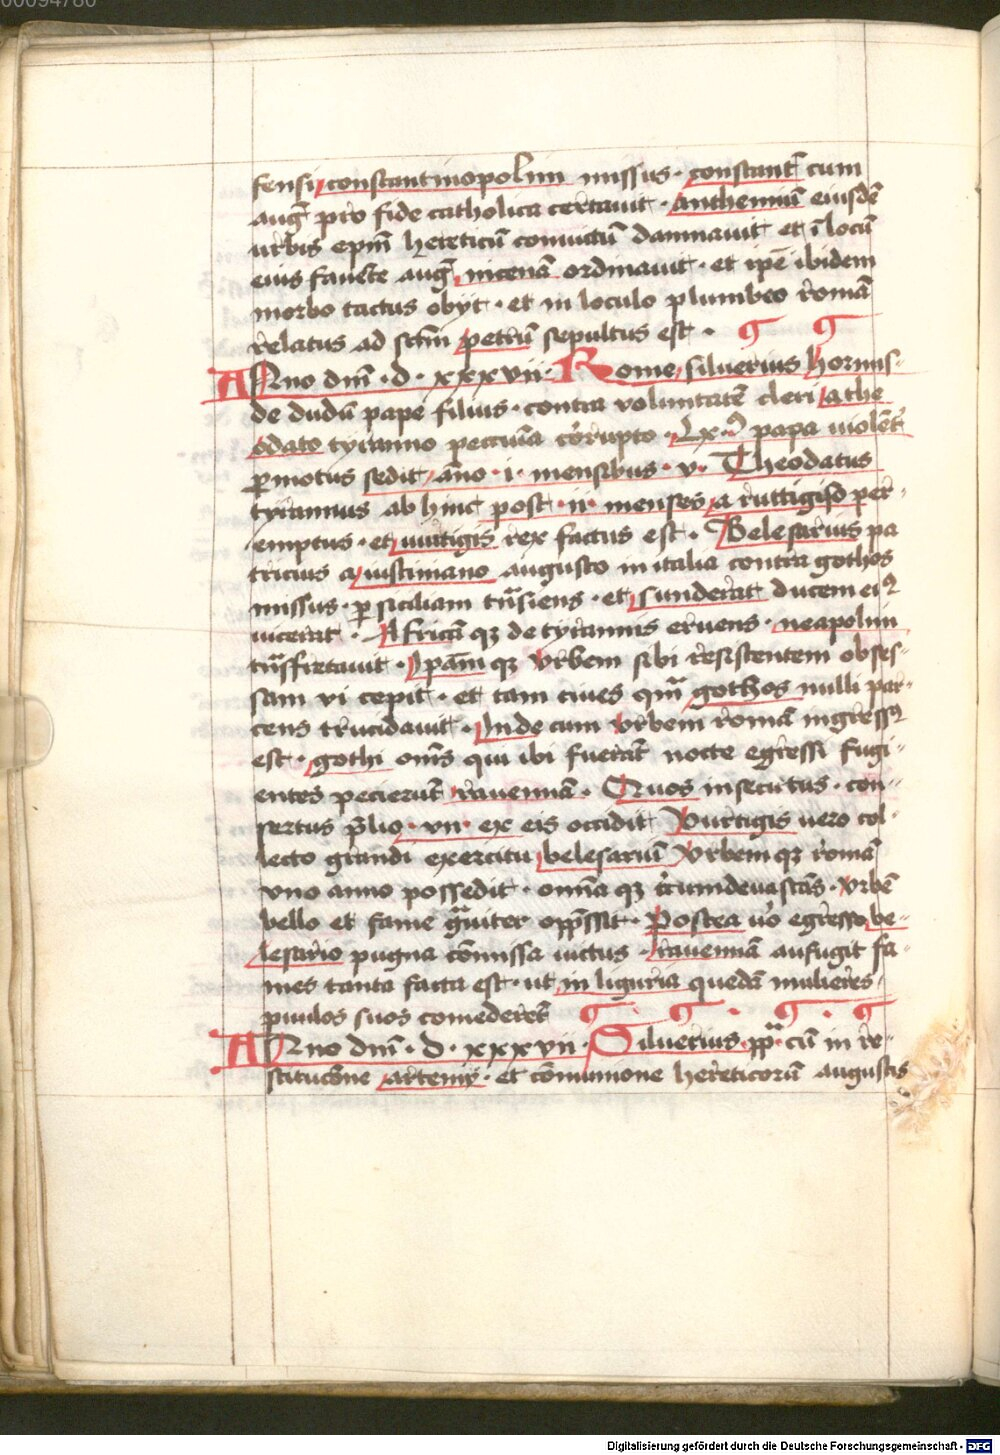 00094780
fensi constantinopolim missus · constant̄ cum
auḡ pro fide catholica certauit · Anthemiū eiusdē
urbis ep̄m hereticū conuictū damnauit et ī locū
eius fauēte auḡ micenā ordinauit · et ip̄e ibidem
morbo tactus obyt · et in loculo plumbeo romā
relatus ad sc̄m petrū sepultus est ·
Anno dm̄ · d · xxxvii · Rome siluerius hormis-
de dudū pape filius · contra voluntatē cleri a the
odato tyranno pecunia cōrupto · Lx · papa violēt̄
ꝑmotus sedit āno · i · mensibus · v · Theodatus
tyrannus ab hinc post · ii · menses a ruttigisō per-
emptus · et uuitigis rex factus est · Belesarius pa
tricius a iustiniano augusto in italia contra gothos
missus · ꝑ siciliam trāsiens · et sunderat̄ ducem eiꝰ
uicerat · Africā qꝫ de tyrannis eruens · neapolim
trāsfretauit · Ip̄am qꝫ vrbem sibi resistentem obses-
sam vi cepit · et tam ciues qm̄ gothos nulli par-
cens trucidauit · Inde cum vrbem romā ingressꝰ
est · gothi om̄s qui ibi fuerāt nocte egressi fugi-
entes pecierūt rauennā · Quos insecutus · con-
sertus p̄lio · vii · ex eis occidit Vuitigis uero col-
lecto grandi exercitu belesariū Vrbem qꝫ romā
vno anno possedit · omīa qꝫ c̄cumdeuastās · vrbē
bello et fame gͣuiter opp̄ssit · Postea uͦo egresso be-
lesario pugna cōmissa uictus · rauennā aufugit fa-
mes tanta facta est · ut in liguria quedā mulieres
ꝑuulos suos comederēt
Anno dm̄ · d · xxxvii · Siluerius · pp̄ · cū in re-
stitucōne artemij · et cōmunione hereticorū augustis
Digitalisierung gefördert durch die Deutsche Forschungsgemeinschaft - DFG